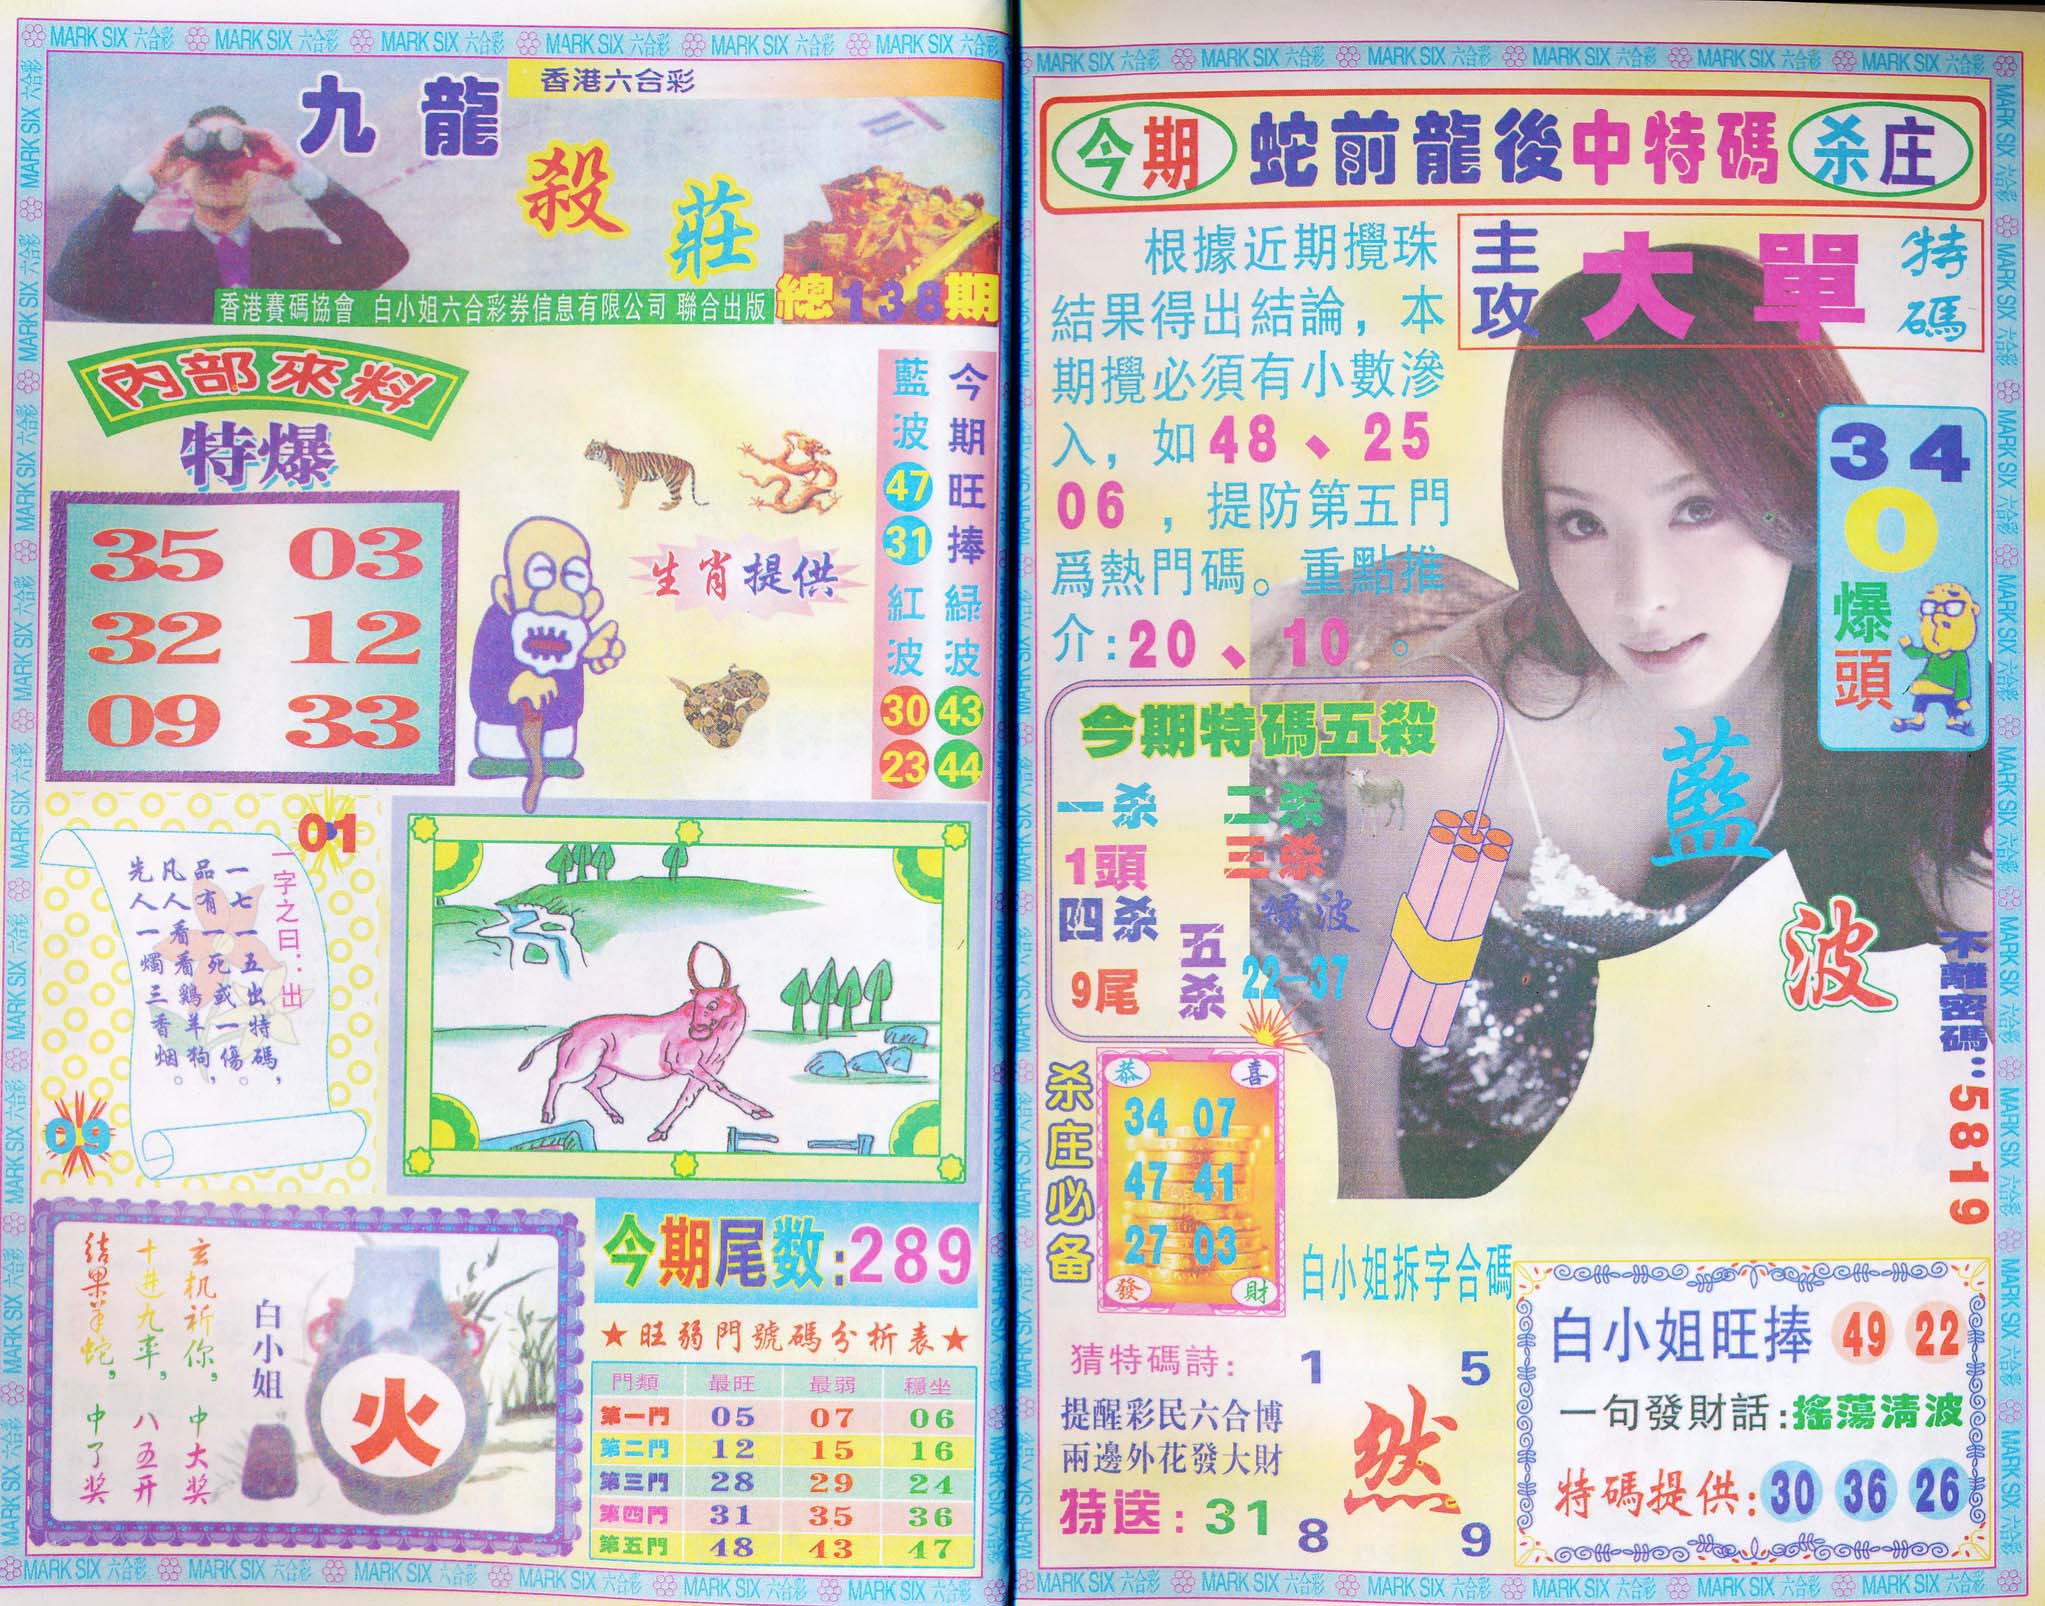 MARK SIX 六合彩 MARK SIX 六合彩 MARK SIX 六合彩 MARK SIX 六合彩 MARK SIX 六合彩 MARK SIX 六合彩
香港六合彩
九龍
殺莊
總138期
香港賽碼協會 白小姐六合彩券信息有限公司 聯合出版
內部來料
特爆
35 03
32 12
09 33
生肖提供
今期旺捧
藍波
47
31
紅波
30
23
綠波
43
44
01
一字之曰:出
一七一五出特碼,
品有一死或一傷。
凡人看看鷄羊狗,
先人一燭三香烟。
09
玄机祈你,中大奖
十进九率,八五开
结果羊蛇,中了奖
白小姐
火
今期尾数:289
★旺弱門號碼分析表★
門類 最旺 最弱 穩坐
第一門 05 07 06
第二門 12 15 16
第三門 28 29 24
第四門 31 35 36
第五門 48 43 47
MARK SIX 六合彩 MARK SIX 六合彩 MARK SIX 六合彩 MARK SIX 六合彩 MARK SIX 六合彩 MARK SIX 六合彩
MARK SIX 六合彩 MARK SIX 六合彩 MARK SIX 六合彩 MARK SIX 六合彩 MARK SIX 六合彩 MARK SIX 六合彩
今期 蛇前龍後中特碼 杀庄
主攻 大單 特碼
根據近期攪珠
結果得出結論,本
期攪必須有小數滲
入,如48、25
06,提防第五門
爲熱門碼。重點推
介:20、10。
34
0
爆頭
藍波
今期特碼五殺
一杀 二杀
1頭 三杀
四杀 绿波
9尾 五杀 22-37
不離密碼:5819
杀庄必备
恭 喜
34 07
47 41
27 03
發 財
白小姐拆字合碼
猜特碼詩:
提醒彩民六合博
兩邊外花發大財
特送:31
1 5
然
8 9
白小姐旺捧 49 22
一句發財話:搖蕩清波
特碼提供:30 36 26
MARK SIX 六合彩 MARK SIX 六合彩 MARK SIX 六合彩 MARK SIX 六合彩 MARK SIX 六合彩 MARK SIX 六合彩